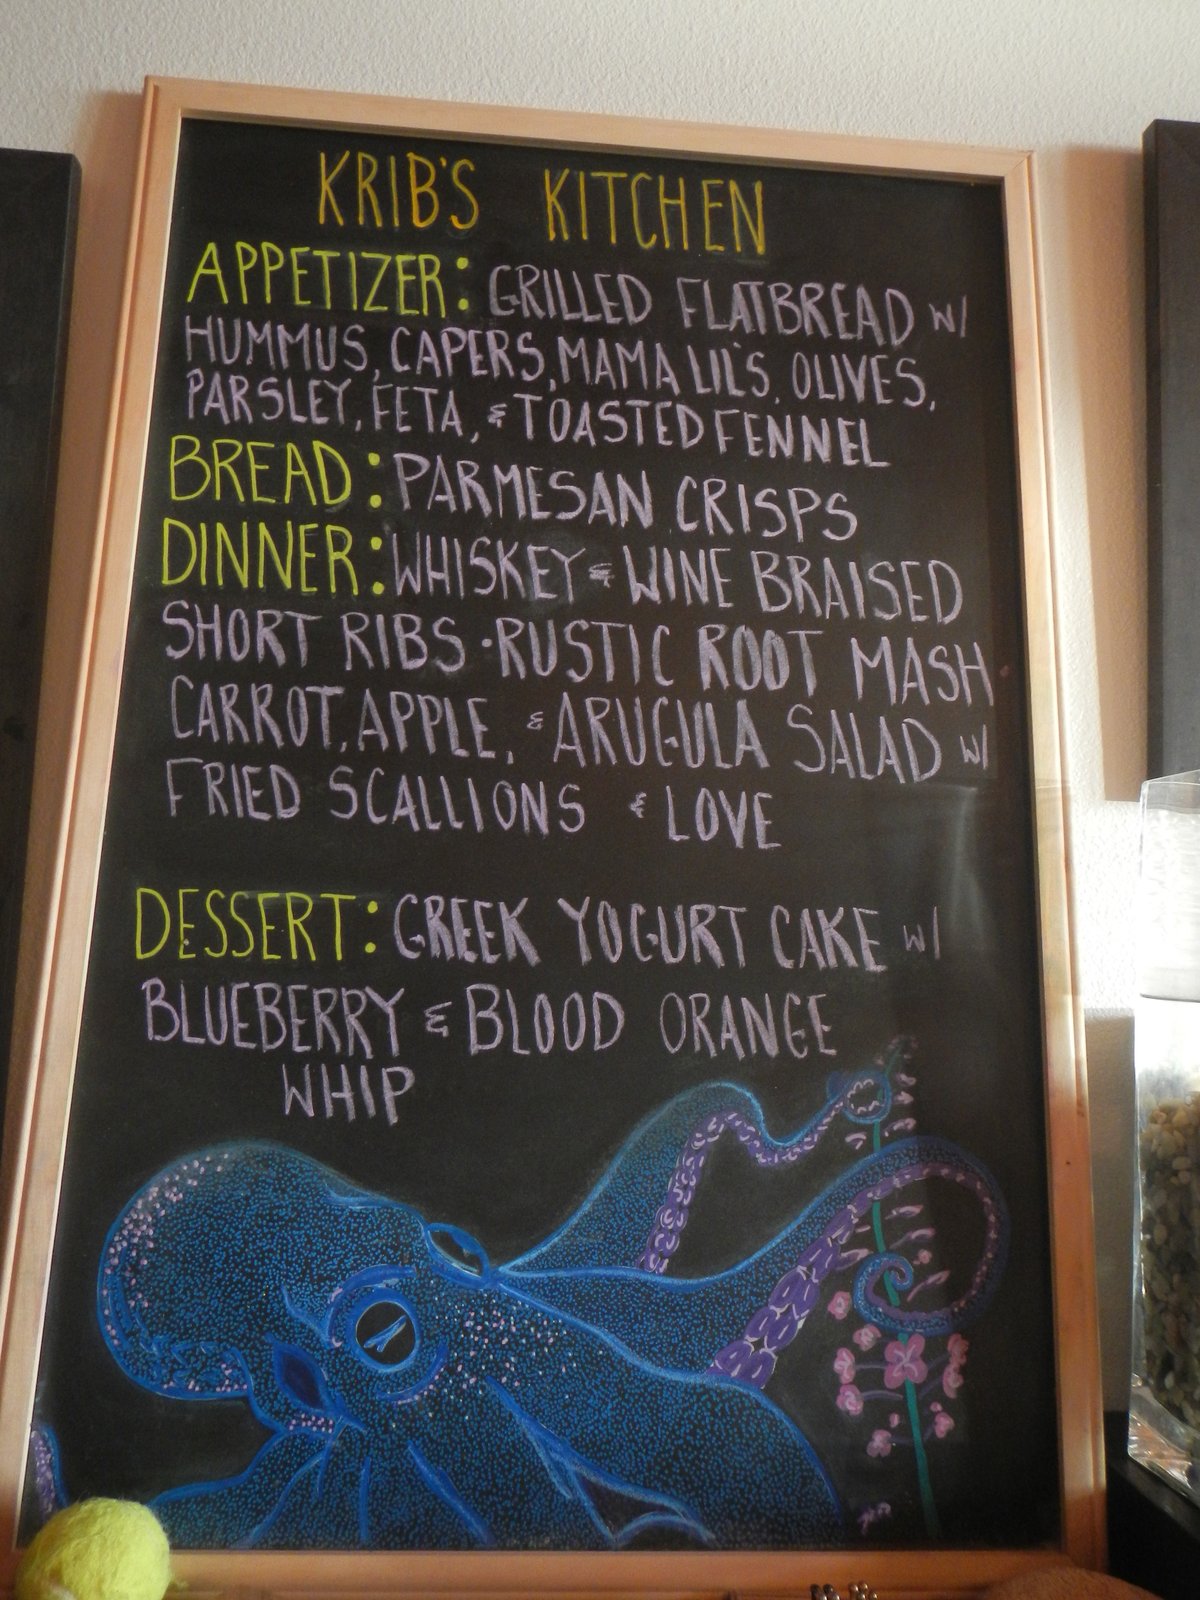 KRIB'S KITCHEN
APPETIZER: GRILLED FLATBREAD W/
HUMMUS, CAPERS, MAMA LIL'S, OLIVES,
PARSLEY, FETA, & TOASTED FENNEL
BREAD: PARMESAN CRISPS
DINNER: WHISKEY & WINE BRAISED
SHORT RIBS · RUSTIC ROOT MASH
CARROT, APPLE, & ARUGULA SALAD W/
FRIED SCALLIONS & LOVE
DESSERT: GREEK YOGURT CAKE W/
BLUEBERRY & BLOOD ORANGE
WHIP